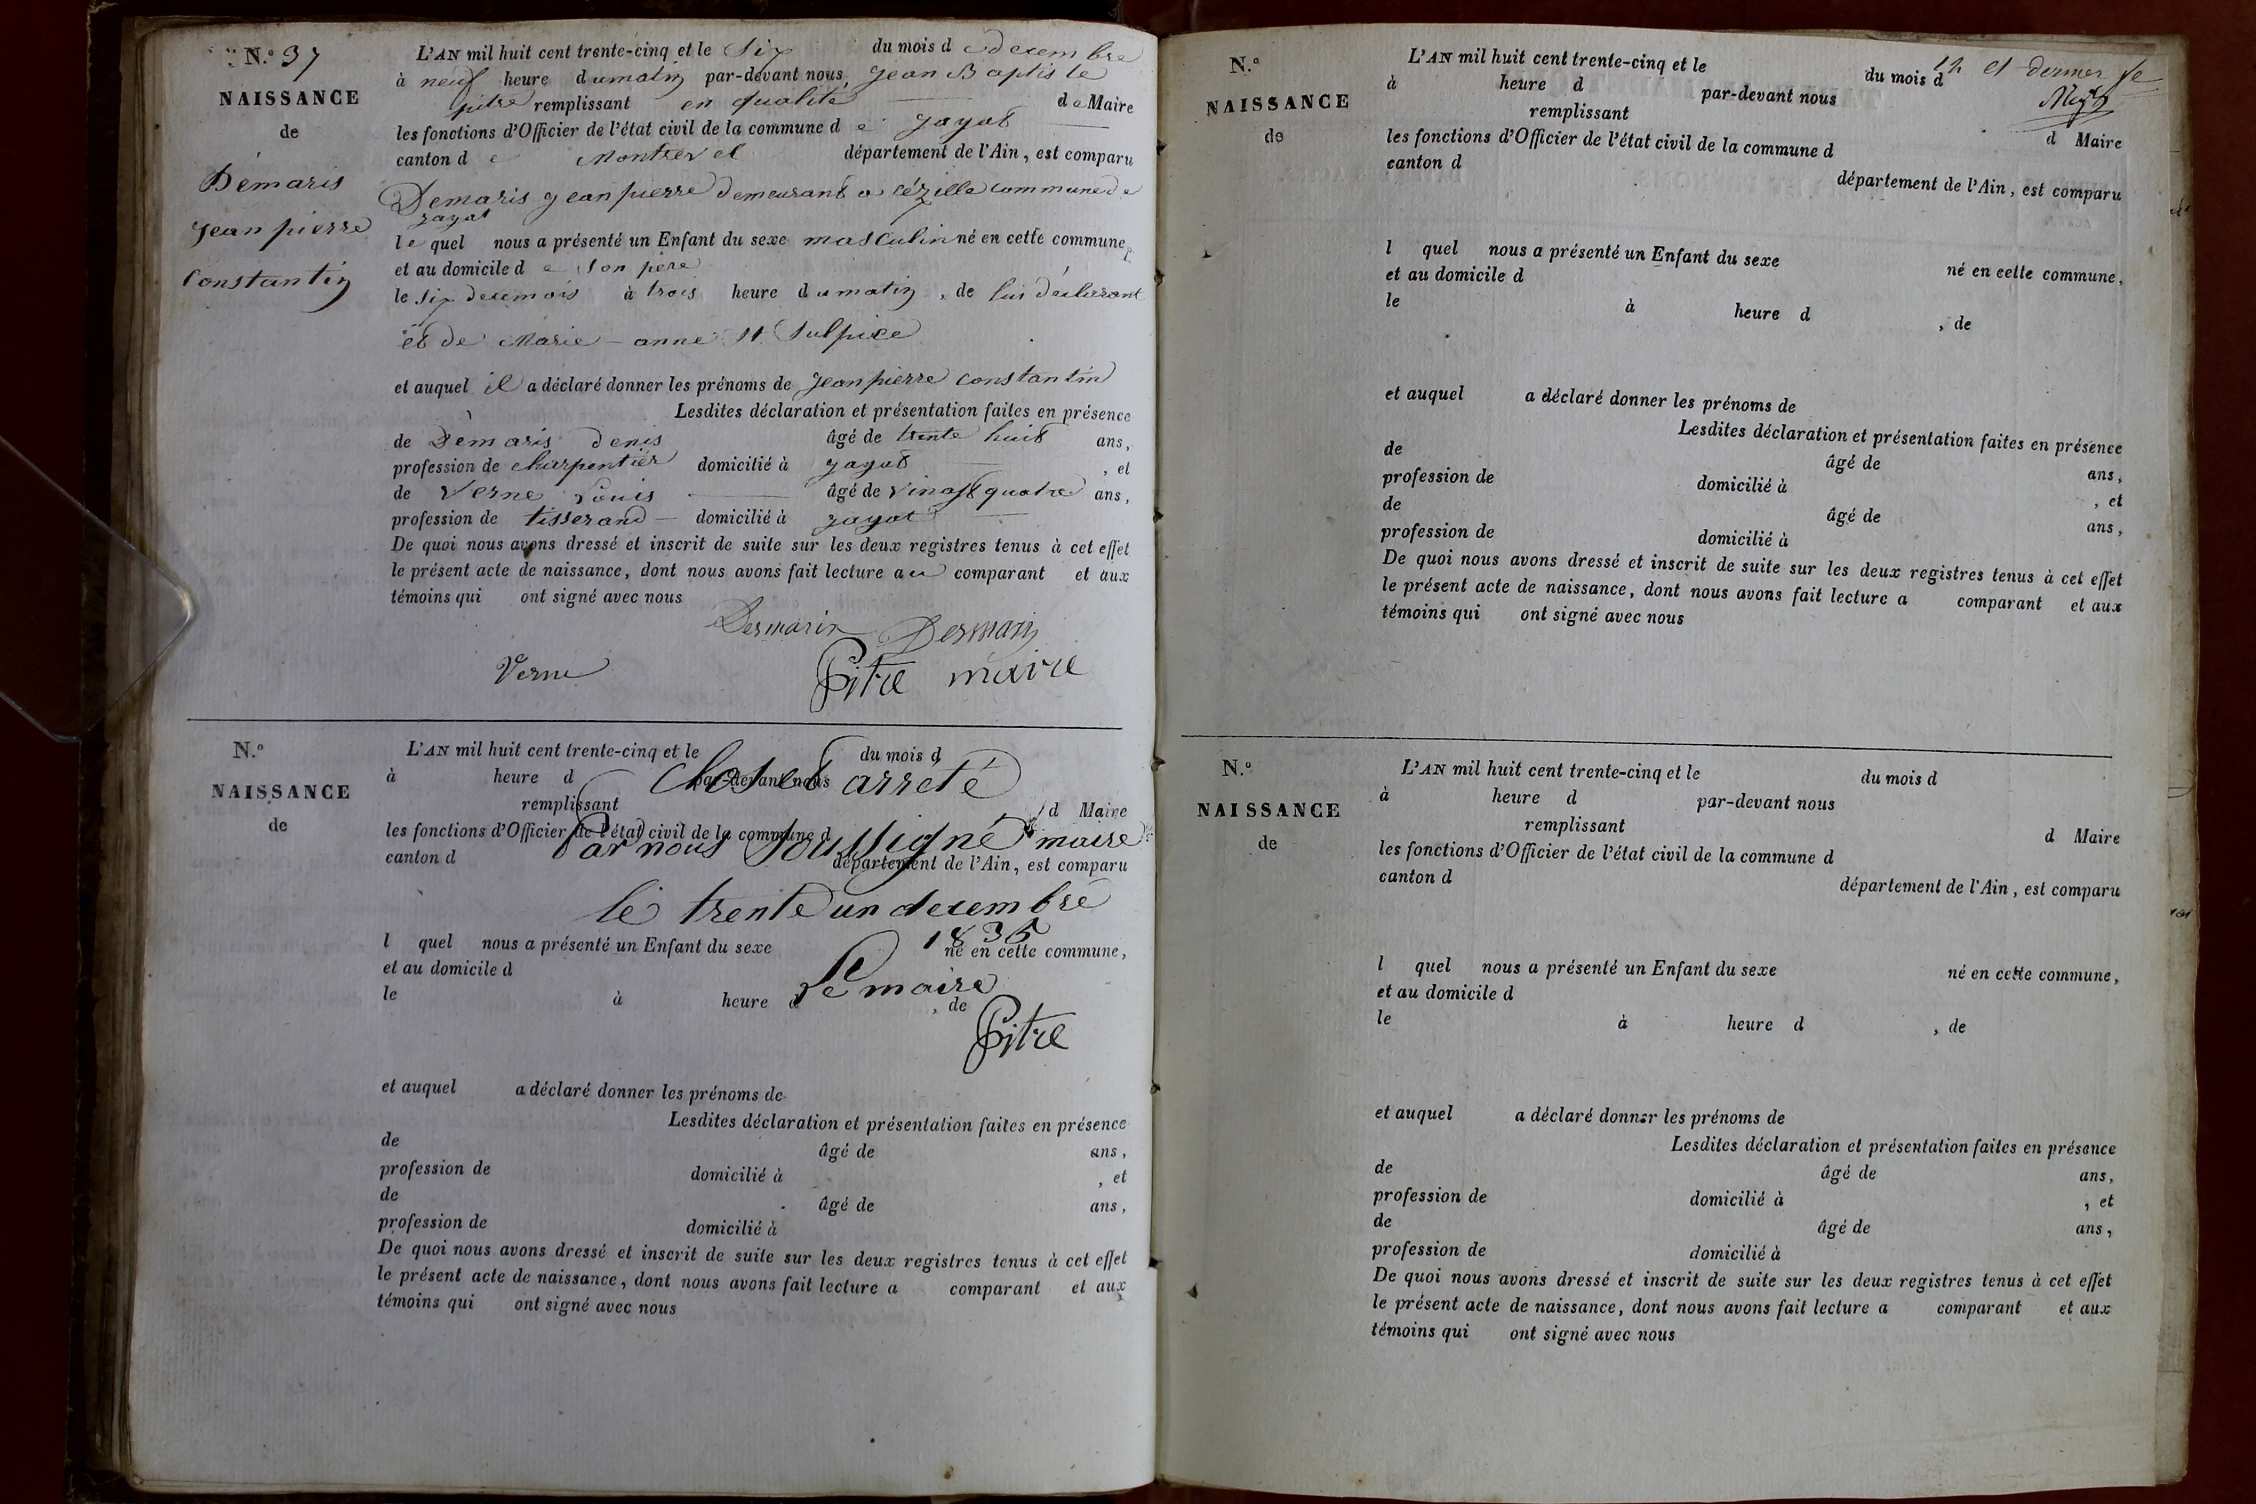 N.° 37
NAISSANCE
de
Démaris
jean pierre
Constantin
L'AN mil huit cent trente-cinq et le Six du mois d e decembre
à neuf heure du matin par-devant nous jean Baptiste
pitre remplissant en qualité de Maire
les fonctions d'Officier de l'état civil de la commune d e jayat
canton d e Montrevel département de l'Ain, est comparu
Demaris jean pierre demeurant a cézille commune de
jayat
le quel nous a présenté un Enfant du sexe masculin né en cette commune,
et au domicile d e son père
le six du mois à trois heure du matin, de lui déclarant
et de Marie-anne St Sulpice
et auquel il a déclaré donner les prénoms de jean pierre constantin
Lesdites déclaration et présentation faites en présence
de Démaris denis âgé de trente huit ans,
profession de charpentier domicilié à jayat, et
de Verne Louis âgé de vingt quatre ans,
profession de tisserand domicilié à jayat
De quoi nous avons dressé et inscrit de suite sur les deux registres tenus à cet effet
le présent acte de naissance, dont nous avons fait lecture au comparant et aux
témoins qui ont signé avec nous
Verne
Pitre maire
N.°
NAISSANCE
de
L'AN mil huit cent trente-cinq et le du mois d
à heure d par-devant nous
Clos et arrêté
remplissant d Maire
les fonctions d'Officier de l'état civil de la commune d
Par nous soussigné maire
canton d département de l'Ain, est comparu
le trente un decembre
1835
l quel nous a présenté un Enfant du sexe né en cette commune,
et au domicile d
Le maire
le à heure d , de
Pitre
et auquel a déclaré donner les prénoms de
Lesdites déclaration et présentation faites en présence
de âgé de ans,
profession de domicilié à , et
de âgé de ans,
profession de domicilié à
De quoi nous avons dressé et inscrit de suite sur les deux registres tenus à cet effet
le présent acte de naissance, dont nous avons fait lecture a comparant et aux
témoins qui ont signé avec nous
et dernier
N.°
NAISSANCE
de
L'AN mil huit cent trente-cinq et le du mois d
à heure d par-devant nous
remplissant d Maire
les fonctions d'Officier de l'état civil de la commune d
canton d département de l'Ain, est comparu
l quel nous a présenté un Enfant du sexe né en cette commune,
et au domicile d
le à heure d , de
et auquel a déclaré donner les prénoms de
Lesdites déclaration et présentation faites en présence
de âgé de ans,
profession de domicilié à , et
de âgé de ans,
profession de domicilié à
De quoi nous avons dressé et inscrit de suite sur les deux registres tenus à cet effet
le présent acte de naissance, dont nous avons fait lecture a comparant et aux
témoins qui ont signé avec nous
N.°
NAISSANCE
de
L'AN mil huit cent trente-cinq et le du mois d
à heure d par-devant nous
remplissant d Maire
les fonctions d'Officier de l'état civil de la commune d
canton d département de l'Ain, est comparu
l quel nous a présenté un Enfant du sexe né en cette commune,
et au domicile d
le à heure d , de
et auquel a déclaré donner les prénoms de
Lesdites déclaration et présentation faites en présence
de âgé de ans,
profession de domicilié à , et
de âgé de ans,
profession de domicilié à
De quoi nous avons dressé et inscrit de suite sur les deux registres tenus à cet effet
le présent acte de naissance, dont nous avons fait lecture a comparant et aux
témoins qui ont signé avec nous